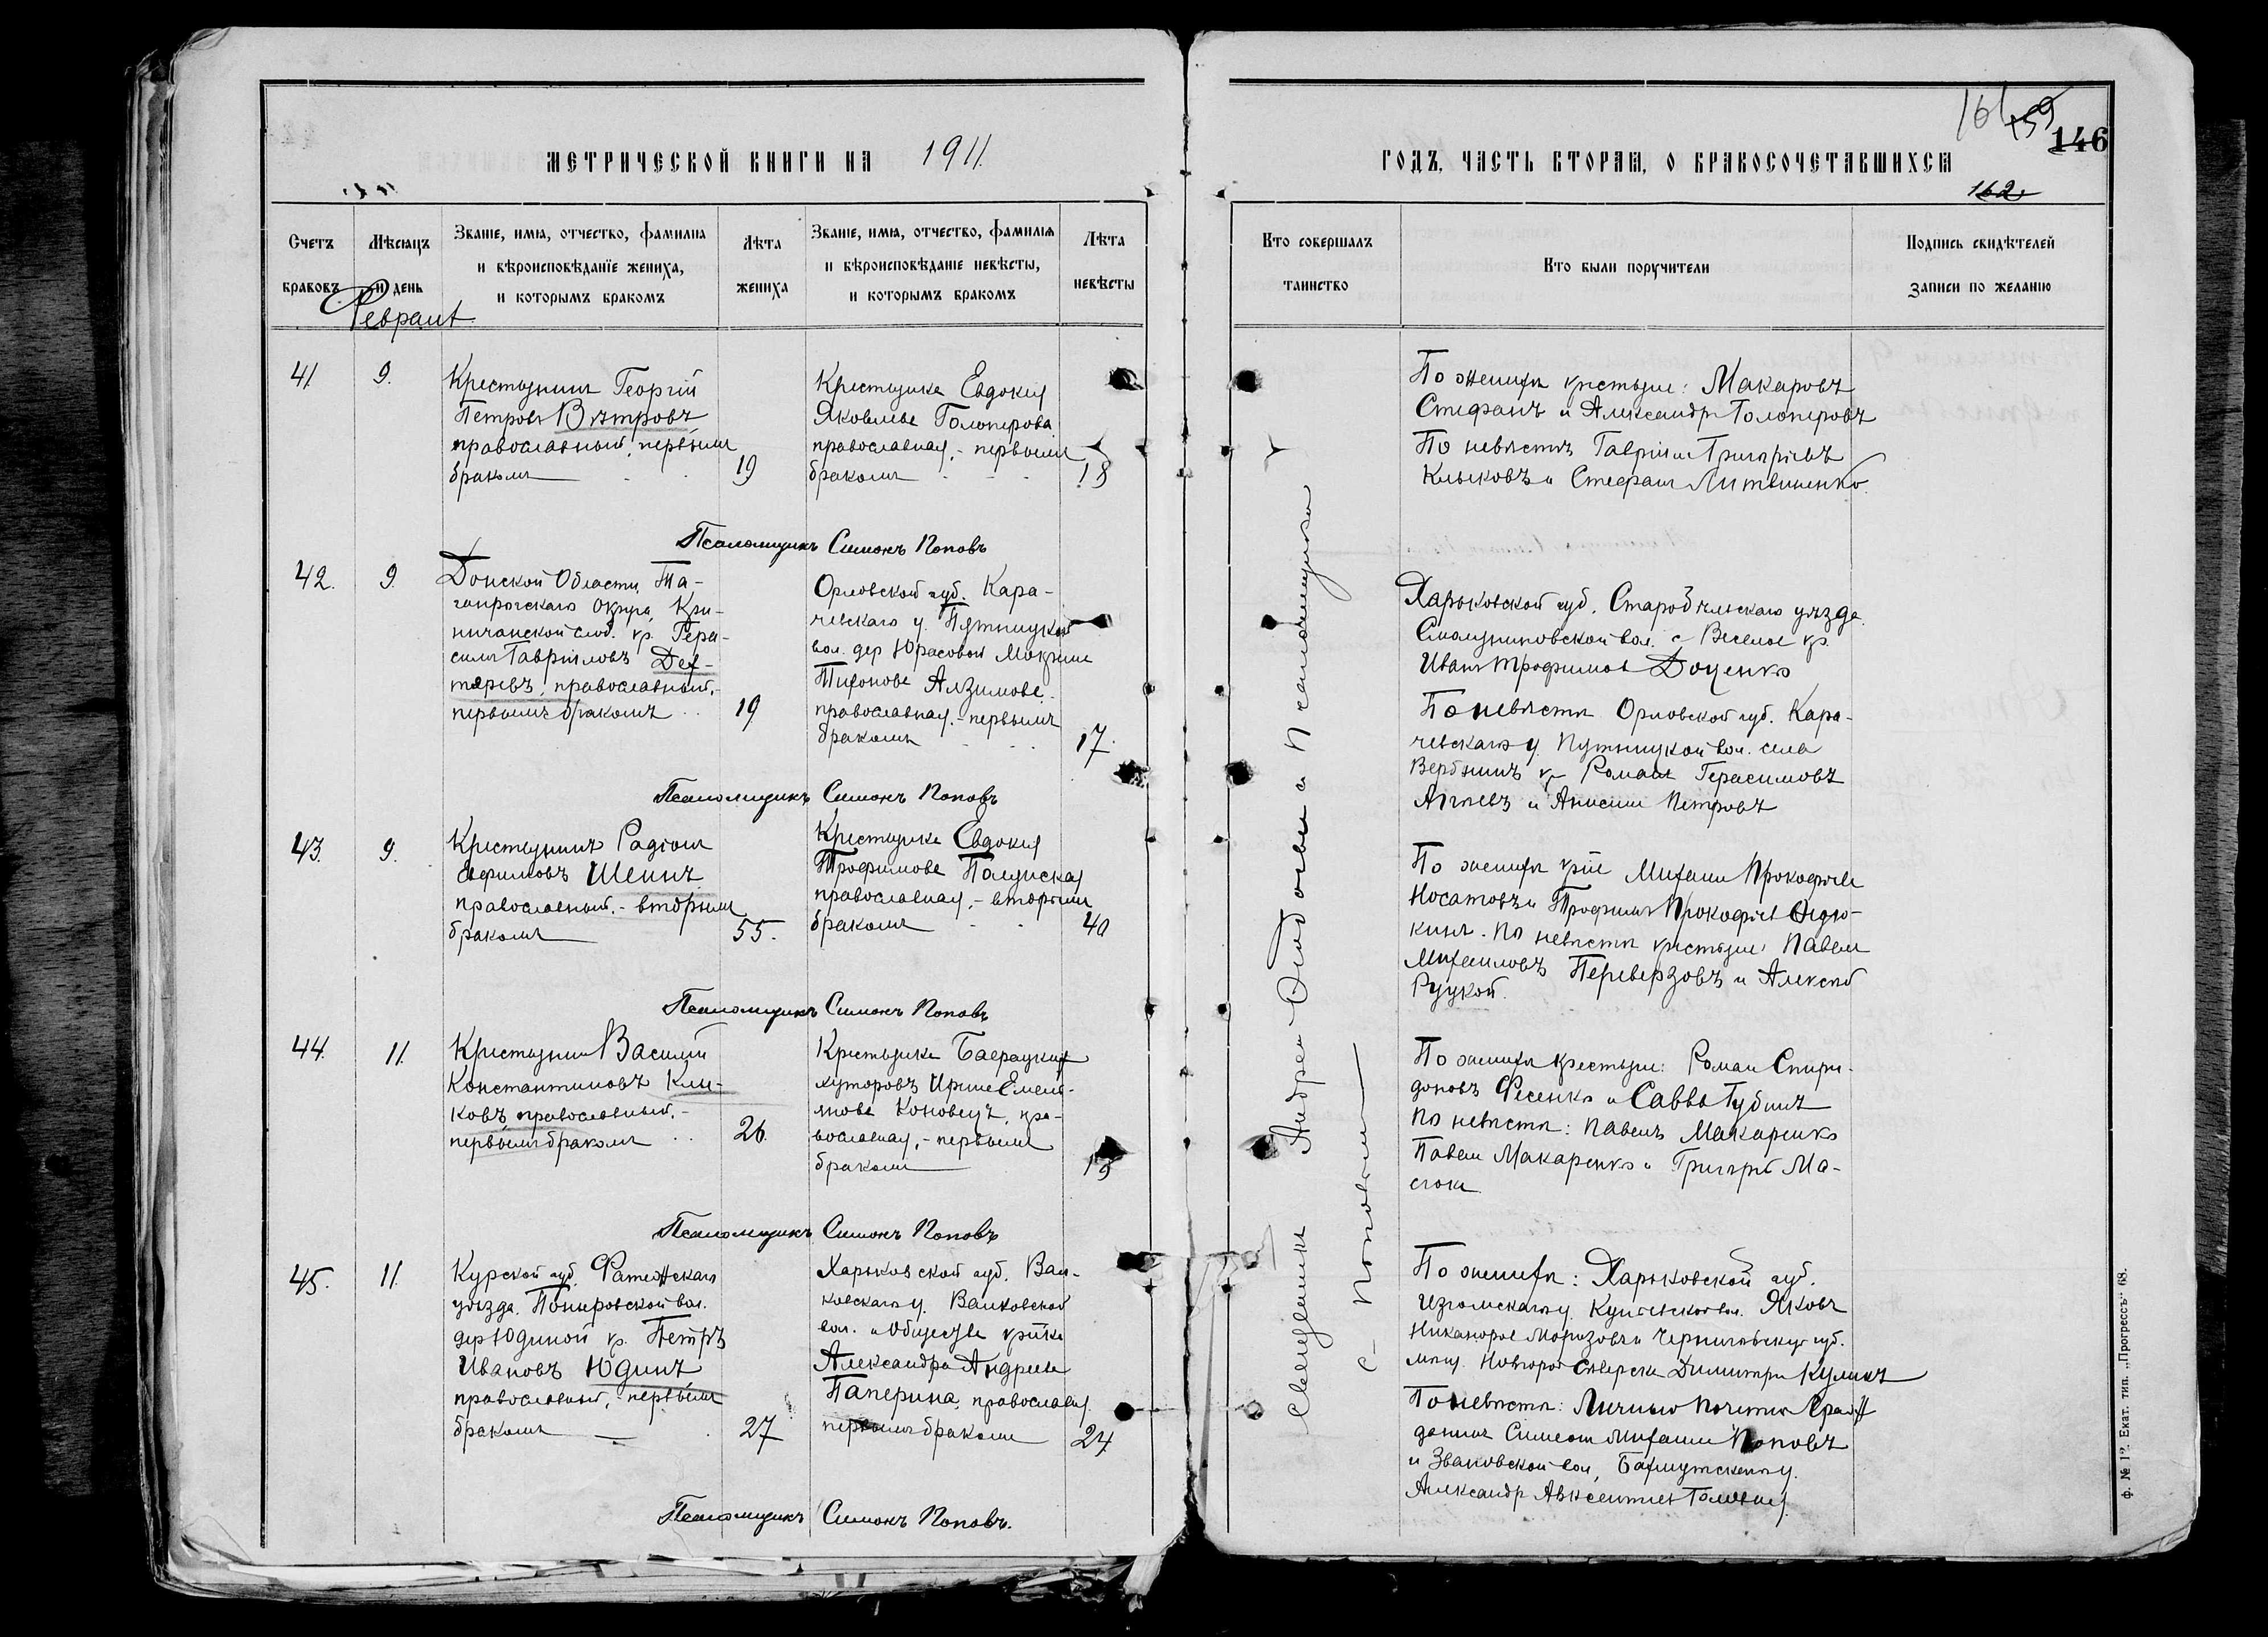 МЕТРИЧЕСКОЙ КНИГИ НА 1911.
Счетъ браковъ
Мѣсяцъ и день
Званіе, имя, отчество, фамилія
и вѣроисповѣданіе жениха,
и которымъ бракомъ
Лѣта жениха
Званіе, имя, отчество, фамилія
и вѣроисповѣданіе невѣсты,
и которымъ бракомъ
Лѣта невѣсты
41.
9.
Крестьянинъ Георгій
Петровъ Вѣтровъ
православный, первымъ
бракомъ
19
Крестьянка Евдокія
Яковлева Голоперова
православная, - первымъ
бракомъ
18
Псаломщикъ Симонъ Поповъ
42.
9.
Донской Области, Та-
ганрогскаго Округа, Кри-
ничанской слоб. кр. Гера-
симъ Гавріиловъ Дех-
теревъ, православный, -
первымъ бракомъ
19
Орловской губ. Кара-
чевскаго у. Пятницкой
вол. дер Юрасовой
Тихонова
православная, - первымъ
бракомъ
17.
Псаломщикъ Симонъ Поповъ
43.
9.
Крестьянинъ Радіонъ
Ефимовъ Шеинъ
православный, - вторымъ
бракомъ
55.
Крестьянка Евдокія
Трофимова
православная, - вторымъ
бракомъ
40
Псаломщикъ Симонъ Поповъ
44.
11.
Крестьянинъ Василій
Константиновъ Кли-
ковъ, православный, -
первымъ бракомъ
26.
Крестьянка
хуторовъ Ирина Емель-
янова Коновецъ, пра-
вославная, - первымъ
бракомъ
Псаломщикъ Симонъ Поповъ
45.
11.
Курской губ. Фатежскаго
уѣзда, Поныровской вол.
дер Юдиной кр. Петръ
Ивановъ Юдинъ
православный, - первымъ
бракомъ
27
Харьковской губ. Вал-
ковскаго у. Валковской
вол. и Общества кр-нка
Александра Андреева
Паперина, православная
первымъ бракомъ
24
Псаломщикъ Симонъ Поповъ.
ГОДЪ, ЧАСТЬ ВТОРАЯ, О БРАКОСОЧЕТАВШИХСЯ
161
159
146
162.
Кто совершалъ таинство
Кто были поручители
Подпись свидѣтелей
записи по желанію
Священникъ Андрей
съ Поповымъ
По женихѣ крестьяне: Макаровъ
Стефанъ и Александръ Голоперовъ
По невѣстѣ Гавріилъ Григорьевъ
Клыковъ и Стефанъ Литвиненко.
Харьковской губ. Старобѣльскаго уѣзда
вол. с. Веселое кр.
Иванъ Трофимовъ Доценко
По невѣстѣ Орловской губ. Кара-
чевскаго у. Пятницкой вол. села
кр Романъ Герасимовъ
и Анисимъ Петровъ
По женихѣ кр-не Михаилъ Прокофьевъ
Носатовъ и Трофимъ Прокофьевъ
По невѣстѣ крестьяне: Павелъ
Михаиловъ Переверзовъ и Алексѣй
Руцкой.
По женихѣ крестьяне: Романъ Спири-
доновъ Фесенко и Савва Губинъ
По невѣстѣ: Павелъ Макаренко
Павелъ Макаренко и Григорій
По женихѣ: Харьковской губ.
Изюмскаго у. вол. Яковъ
Никаноровъ Морозовъ и Черниговской губ.
Новгородъ Сѣверска Димитрій Куликъ
По невѣстѣ: Личный Почетный Граж-
данинъ Симеонъ Михаиловъ Поповъ
и Звановской вол, Бахмутскаго у.
Александръ Авксентьевъ
ф. № 12. Екат. тип. „Прогрессъ" 68.